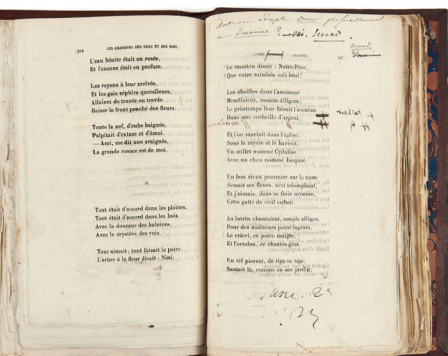 LES CHANSONS DES RUES ET DES BOIS.
L'eau bénite était en rosée,
Et l'encens était en parfum.
Les rayons à leur arrivée,
Et les gais zéphirs querelleurs,
Allaient de travée en travée
Baiser le front penché des fleurs.
Toute la nef, d'aube baignée,
Palpitait d'extase et d'émoi.
— Ami, me dit une araignée,
La grande rosace est de moi.
Tout était d'accord dans les plaines,
Tout était d'accord dans les bois
Avec la douceur des haleines,
Avec le mystère des voix.
Tout aimait; tout faisait la paire.
L'arbre à la fleur disait : Nini;
Le mouton disait : Notre-Père,
Que votre sainfoin soit béni!
Les abeilles dans l'anémone
Mendiaient, essaim diligent;
Le printemps leur faisait l'aumône
Dans une corbeille d'argent.
Et l'on mariait dans l'église,
Sous le myrte et le haricot,
Un œillet nommé Cydalise
Avec un chou nommé Jacquot.
Un bon vieux pommier
Semait ses fleurs,
Et j'aimais, dans ce frais mystère,
Cette gaîté de vieil enfant.
Au lutrin chantaient, couple allègre,
Pour des auditeurs point ingrats,
Le cricri, ce poète maigre,
Et l'ortolan, ce chantre gras.
Un vif pierrot, de tige en tige,
Sautait là, comme en son jardin;